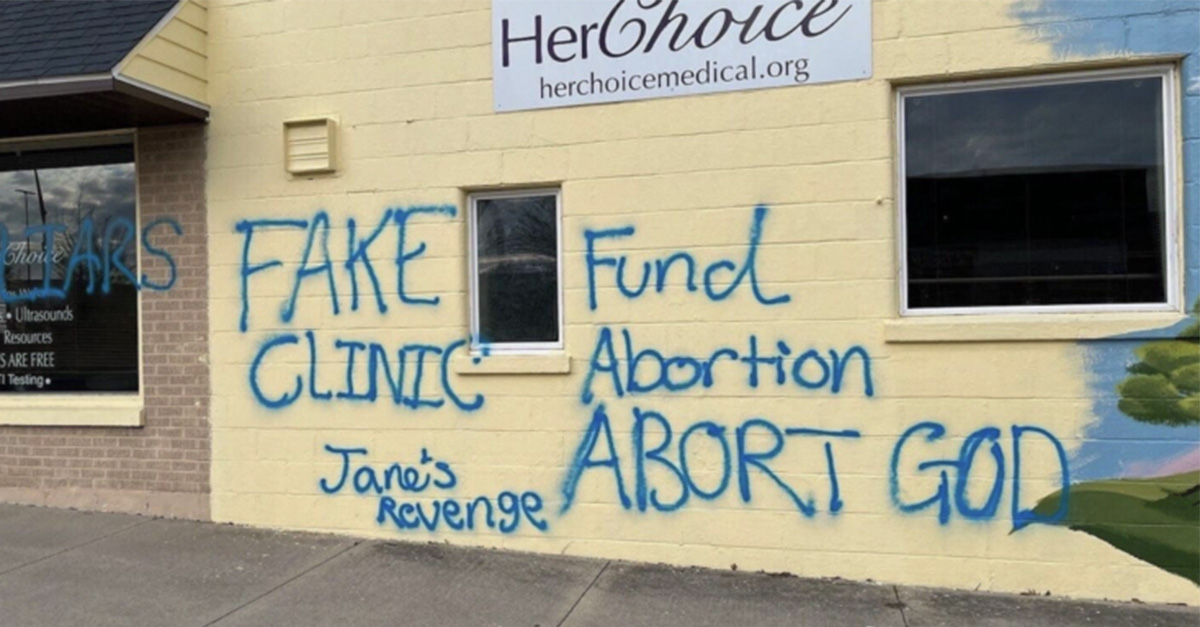 HerChoice
herchoicemedical.org
LIARS
Choice
• Ultrasounds
Resources
ARE FREE
Testing •
FAKE
CLINIC
Jane's
Revenge
Fund
Abortion
ABORT GOD